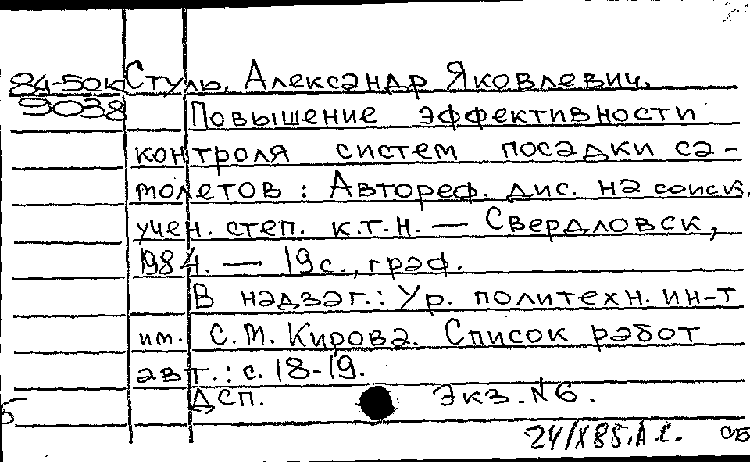 84-50к Стуль, Александр Яковлевич.
9038 Повышение эффективности
контроля систем посадки са-
молетов : Автореф. дис. на соиск.
учен. степ. к.т.н. — Свердловск,
1984. — 19с., граф.
В надзаг.: Ур. политехн. ин-т
им. С.М. Кирова. Список работ
авт.: с. 18-19.
ДСП. Экз. N6.
24/X85.